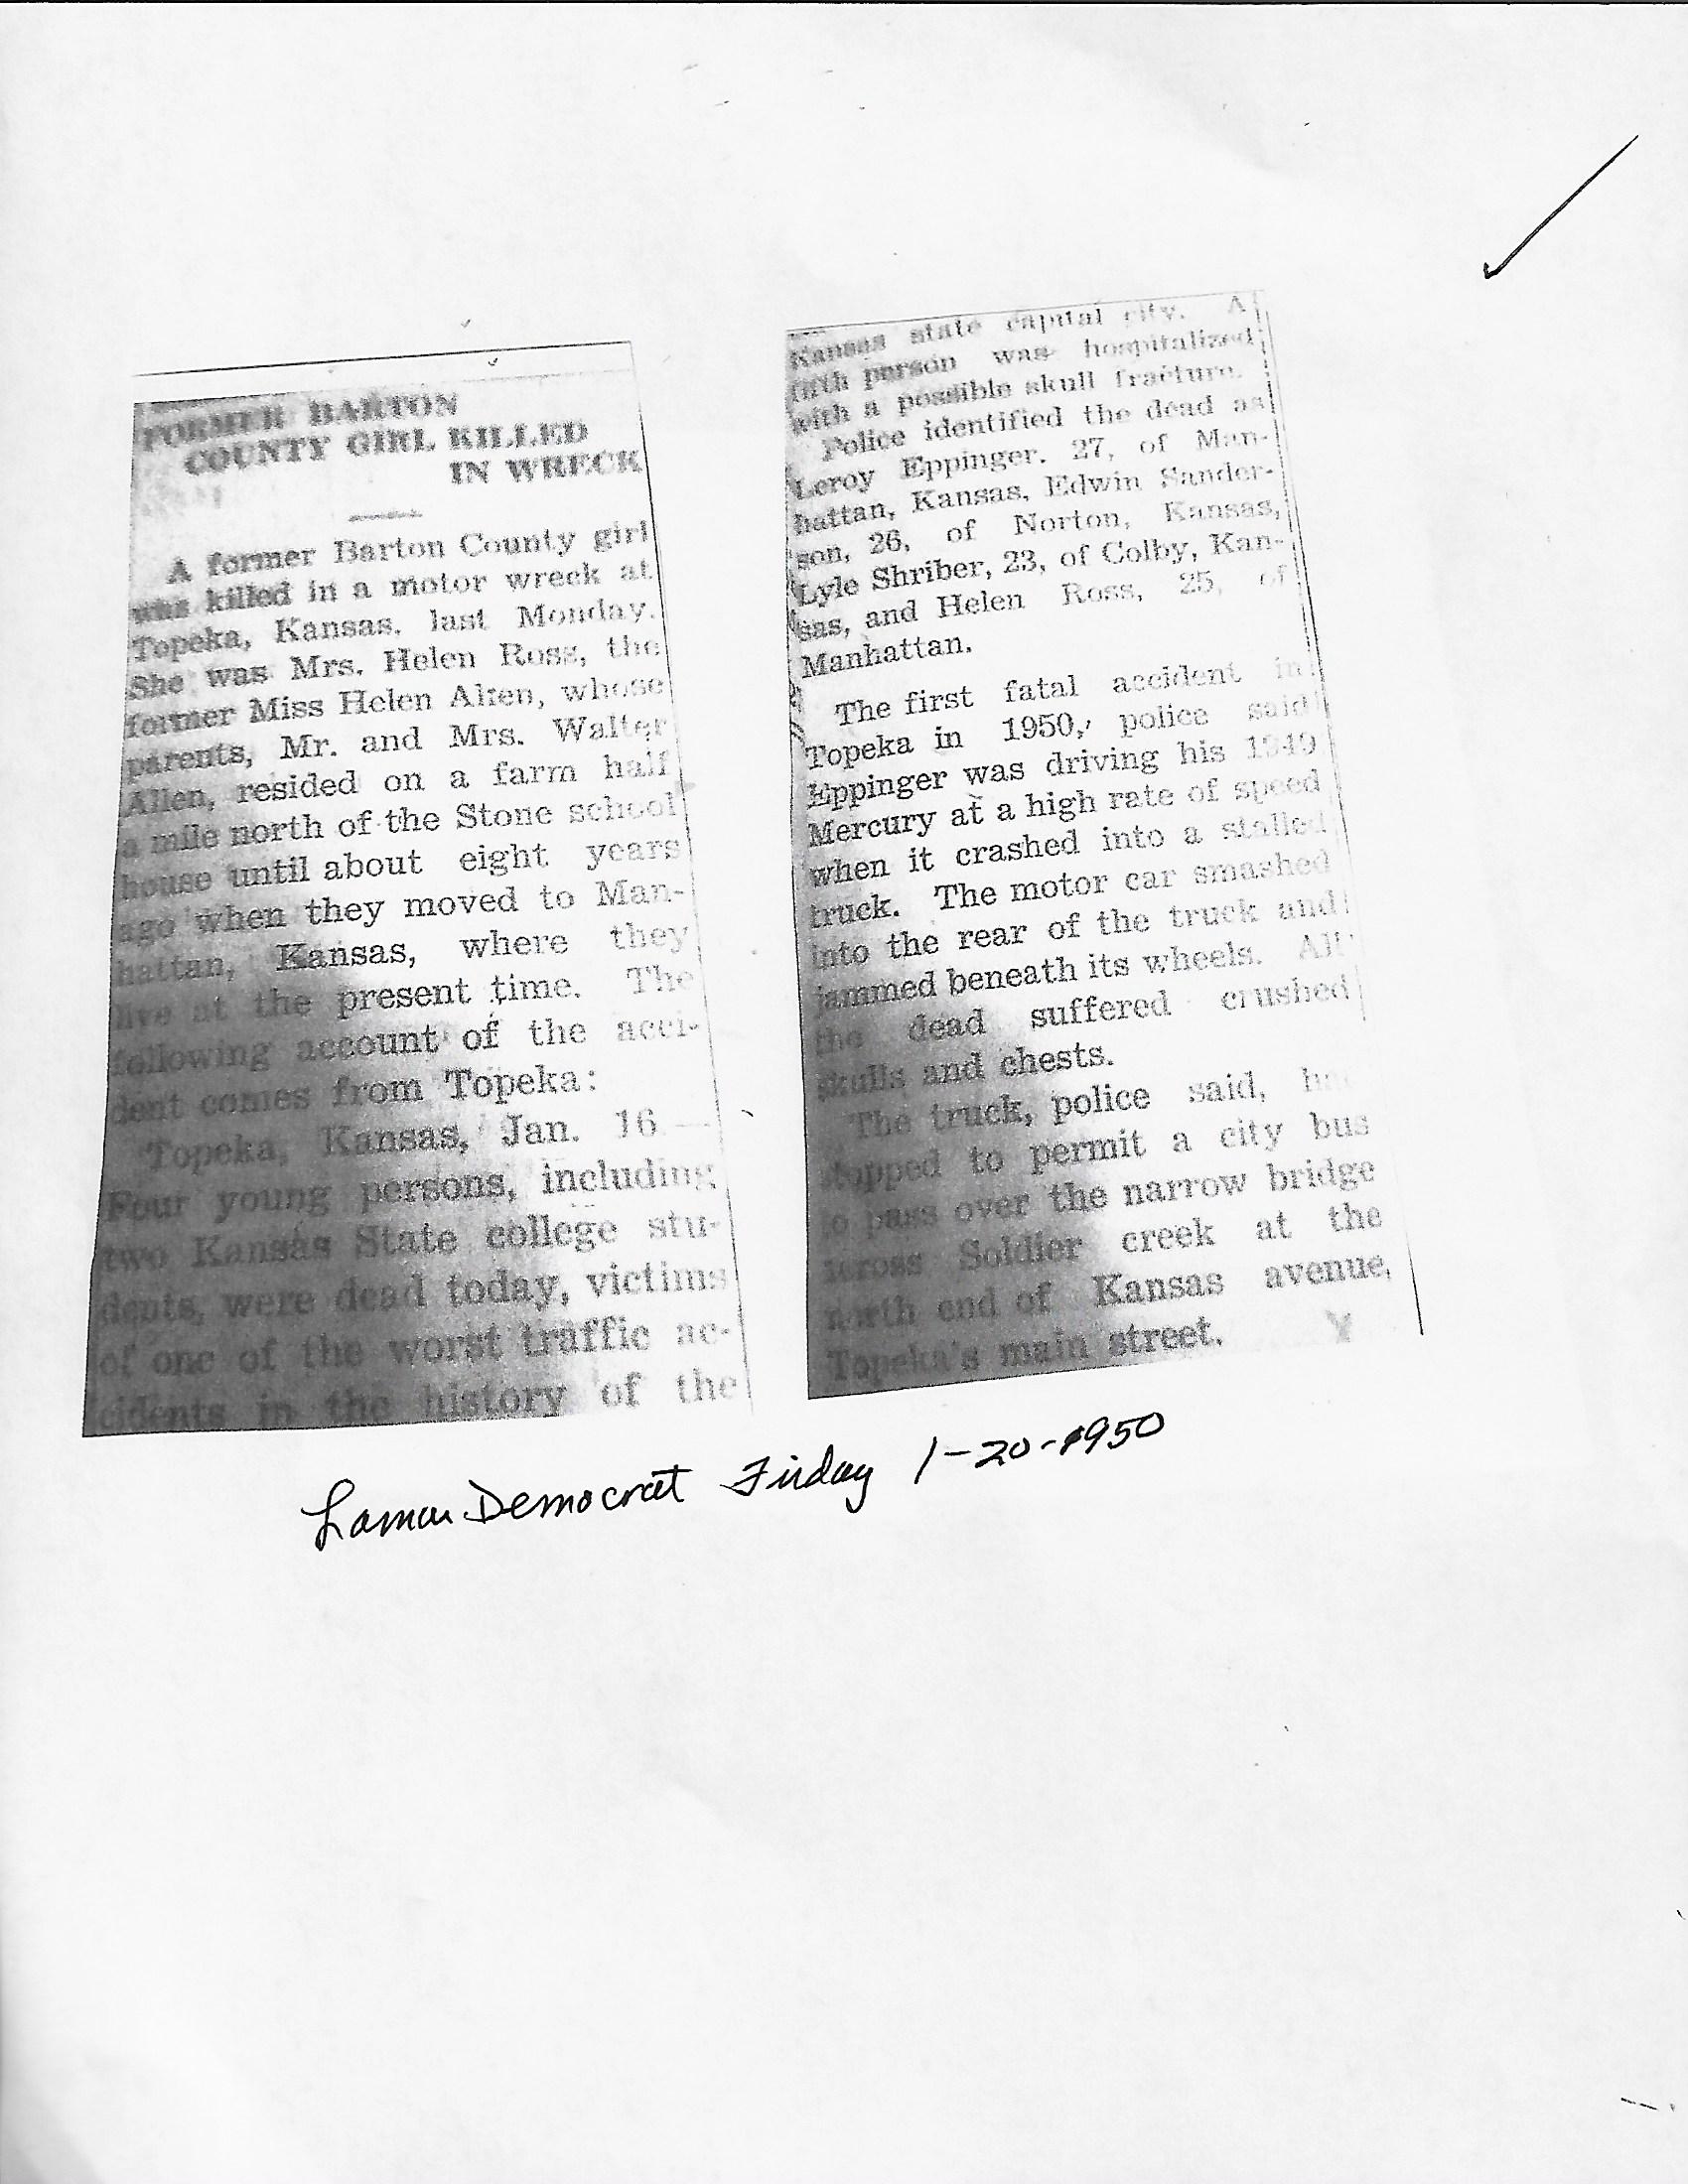 FORMER BARTON
COUNTY GIRL KILLED
IN WRECK
A former Barton County girl
was killed in a motor wreck at
Topeka, Kansas, last Monday.
She was Mrs. Helen Ross, the
former Miss Helen Allen, whose
parents, Mr. and Mrs. Walter
Allen, resided on a farm half
a mile north of the Stone school
house until about eight years
ago when they moved to Man-
hattan, Kansas, where they
live at the present time. The
following account of the acci-
dent comes from Topeka:
Topeka, Kansas, Jan. 16 —
Four young persons, including
two Kansas State college stu-
dents, were dead today, victims
of one of the worst traffic ac-
cidents in the history of the
Kansas state capital city. A
fifth person was hospitalized
with a possible skull fracture.
Police identified the dead as
Leroy Eppinger. 27, of Man-
hattan, Kansas, Edwin Sander-
son, 26, of Norton, Kansas,
Lyle Shriber, 23, of Colby, Kan-
sas, and Helen Ross, 25, of
Manhattan.
The first fatal accident in
Topeka in 1950, police said
Eppinger was driving his 1949
Mercury at a high rate of speed
when it crashed into a stalled
truck. The motor car smashed
into the rear of the truck and
jammed beneath its wheels. All
the dead suffered crushed
skulls and chests.
The truck, police said, had
stopped to permit a city bus
to pass over the narrow bridge
across Soldier creek at the
north end of Kansas avenue,
Topeka's main street.
Lamar Democrat Friday 1-20-1950